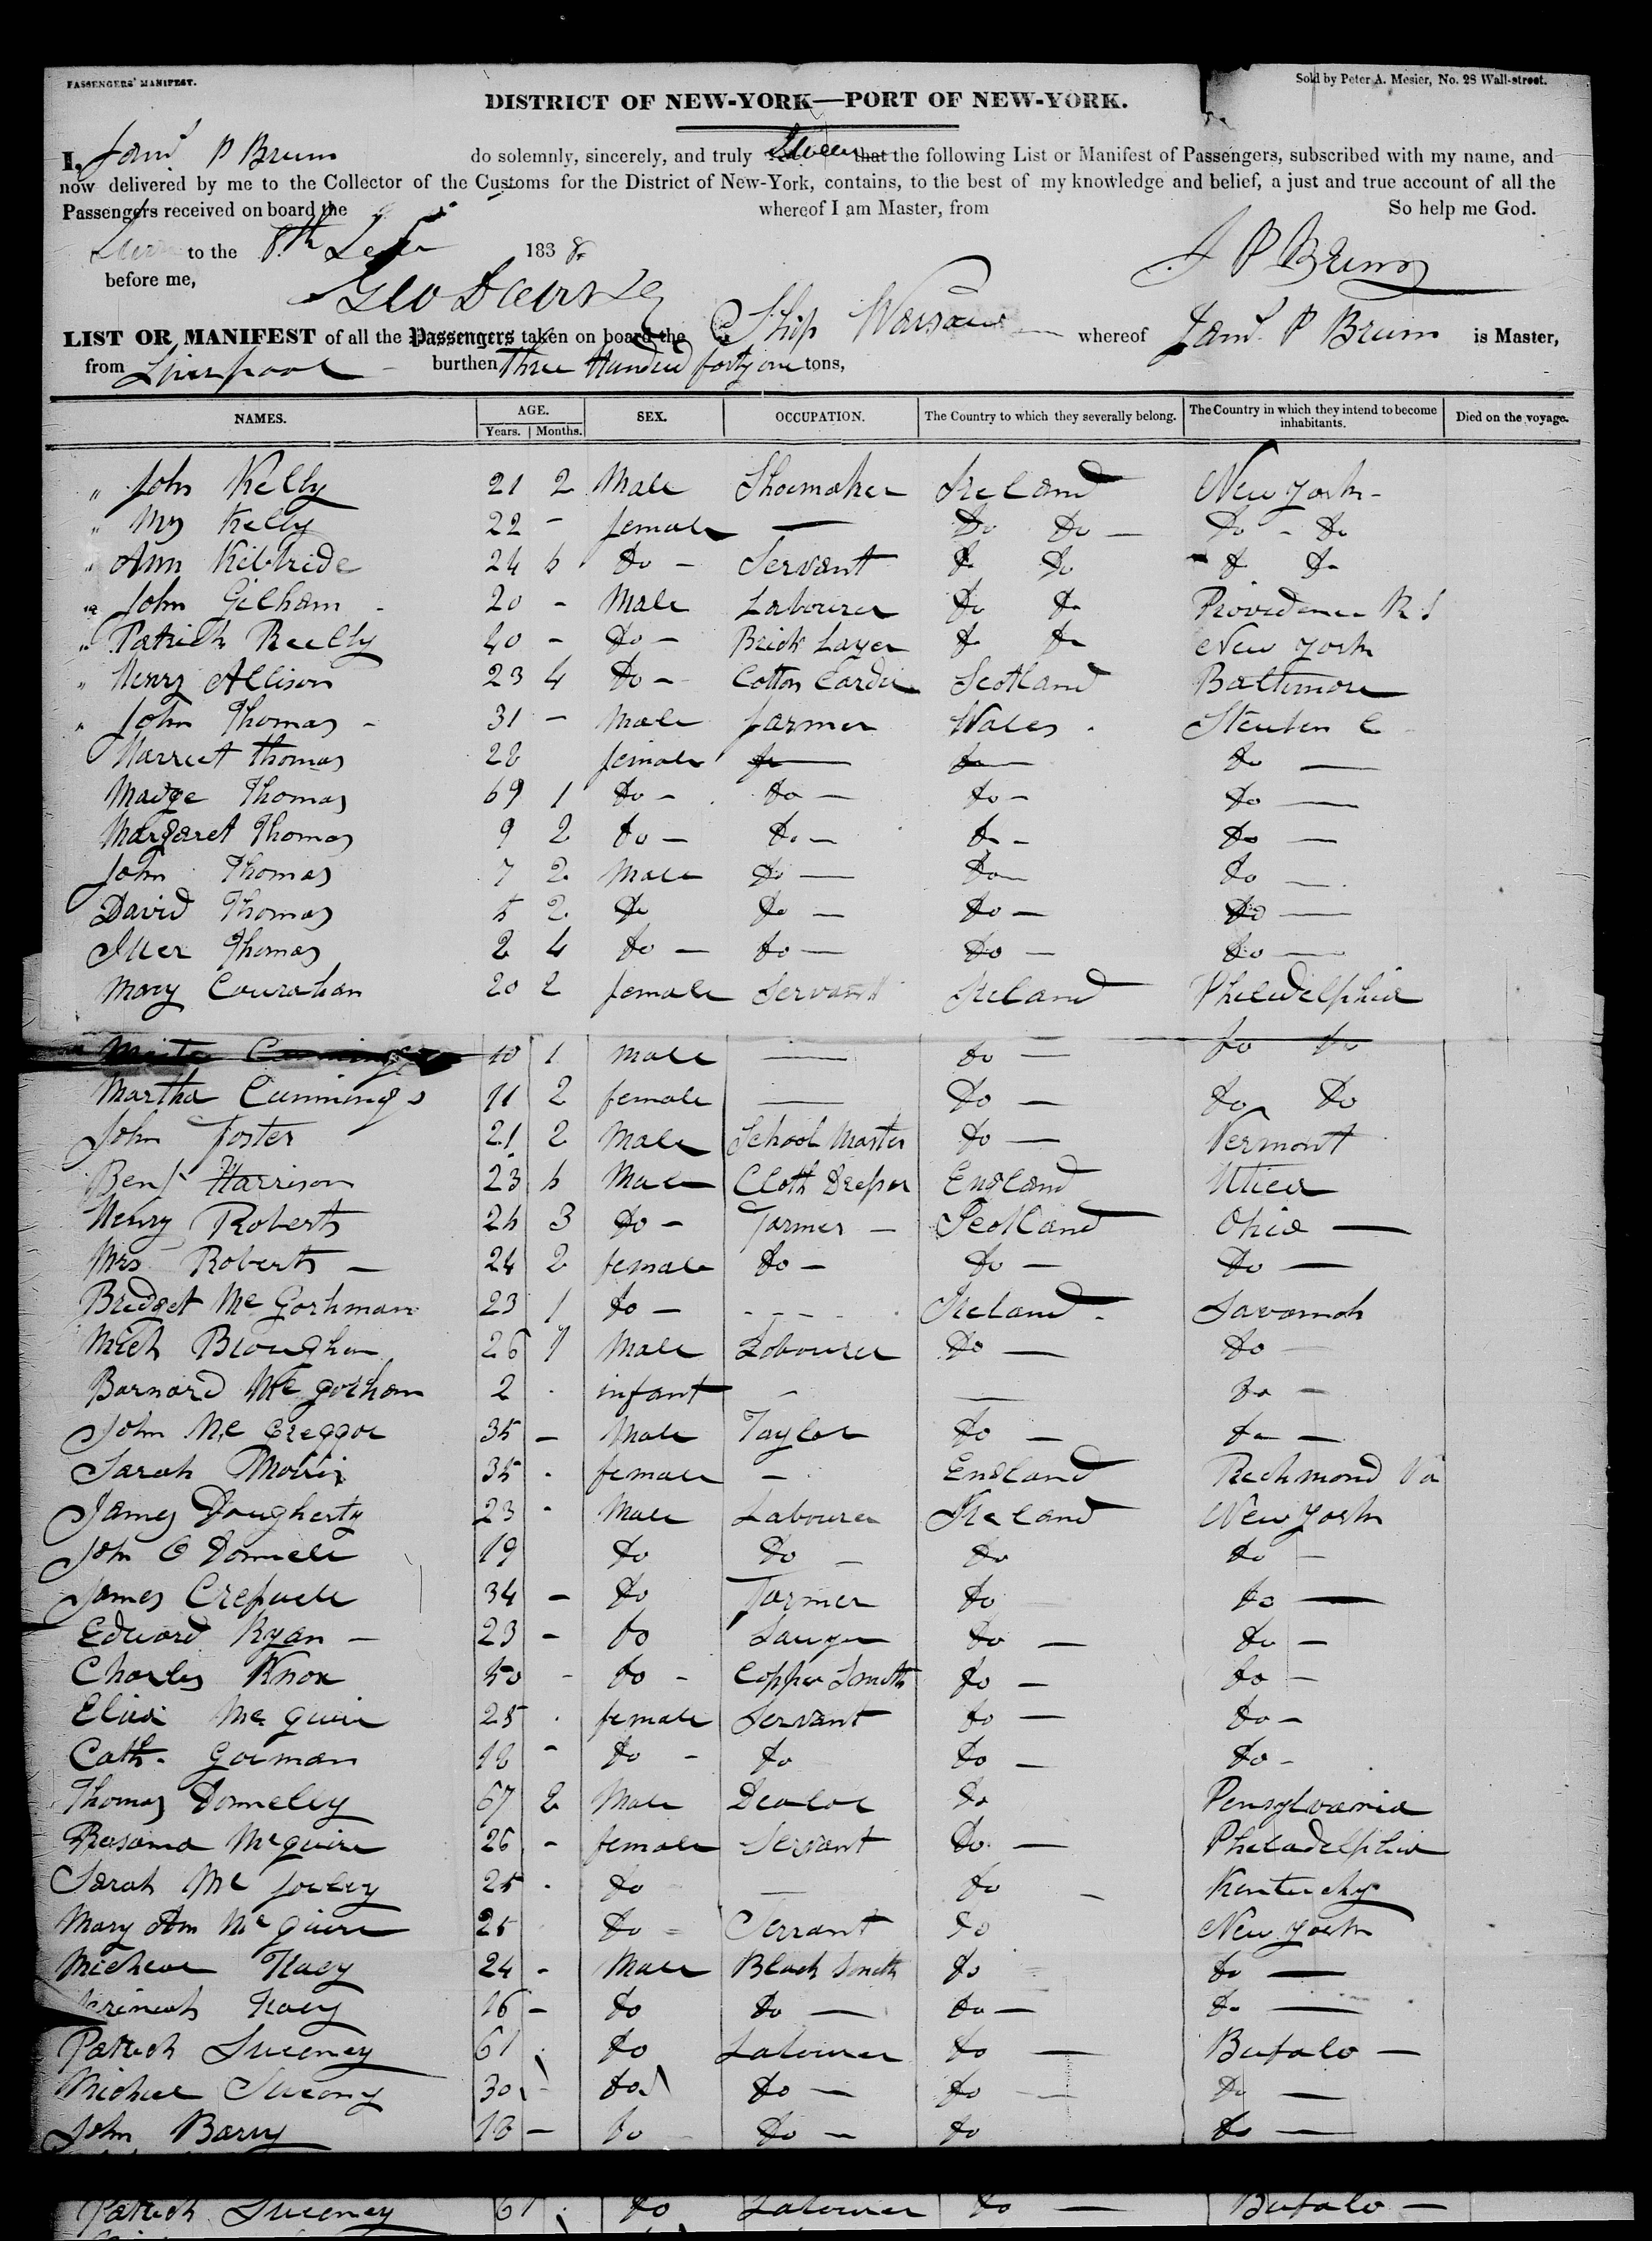 PASSENGERS' MANIFEST. Sold by Peter A. Mesier, No. 28 Wall-street.
DISTRICT OF NEW-YORK—PORT OF NEW-YORK.
I, P Brum do solemnly, sincerely, and truly that the following List or Manifest of Passengers, subscribed with my name, and
now delivered by me to the Collector of the Customs for the District of New-York, contains, to the best of my knowledge and belief, a just and true account of all the
Passengers received on board the whereof I am Master, from So help me God.
to the 8th 1838
J P Brum
before me,
LIST OR MANIFEST of all the Passengers taken on board the Ship Warsaw whereof P Brum is Master,
from Liverpool burthen Three Hundred forty one tons,
NAMES. AGE. SEX. OCCUPATION. The Country to which they severally belong. The Country in which they intend to become inhabitants. Died on the voyage.
Years. Months.
" John Kelly 21 2 Male Shoemaker Ireland New York -
" Mrs Kelly 22 - female — Do Do — Do - Do
" Ann Kilbride 24 6 Do - Servant Do Do Do Do
" John Gilham - 20 - Male Labourer Do Do Providence R I
" Patrick Reelly 40 - Do - Brick Layer Do Do New York
" Henry Allison 23 4 Do - Cotton Carder Scotland Baltimore
" John Thomas - 31 - Male farmer Wales Steuben C
Harriet Thomas 28 female Do — Do — Do —
Madge Thomas 69 1 Do - Do — Do - Do —
Margaret Thomas 9 2 Do — Do — Do - Do —
John Thomas 7 2 Male Do — Do — Do —
David Thomas 5 2 Do Do — Do — Do —
Thomas 2 4 Do — Do — Do — Do —
Mary Courahan 20 2 female Servant Ireland Philedelphia
Cummings 10 1 Male — Do — Do Do
Martha Cummings 11 2 female — Do — Do Do
John Foster 21 2 Male School Master Do — Vermont
Benj Harrison 23 6 Male Cloth Dreper England Utica
Henry Roberts 26 3 Do - Farmer — Scotland Ohio —
Mrs Roberts — 24 2 female Do - Do — Do —
Bridget Mc Gorhman 23 1 Do — - - - Ireland - Savannah
Mich Broughan 26 7 Male Labourer Do — Do —
Barnard Mc gorhan 2 . infant - — Do —
John Mc Greggor 35 — Male Taylor Do — Do —
Sarah Morris 35 . female — England Richmond Va
James Dougherty 23 - Male Labourer Ireland New York
John O Donnell 19 Do Do — Do Do —
James 34 - Do Farmer Do Do —
Edward Ryan — 23 - Do Do — Do —
Charles Knox 50 - Do - Copper Smith Do — Do —
Eliza Mc Guire 25 . female Servant Do — Do —
Cath. Gorman 18 - Do - Do Do — Do -
Thomas Donneley 67 2 Male Dealor Do Pensylvania
Rosanna McGuire 26 - female Servant Do — Philadelphia
Sarah Mc 25 . Do — Do — Kentucky
Mary Ann McGuire 25 Do Servant Do New York
24 - Male Black Smith Do Do —
16 - Do Do — Do — Do —
Patrick Sweeney 61 . Do Labourer Do — Bufalo —
Michael Sweeny 30 - Do Do — Do — Do —
John Barry 18 — Do Do — Do Do —
Patrick Sweeney 61 . Do Labourer Do — Bufalo —